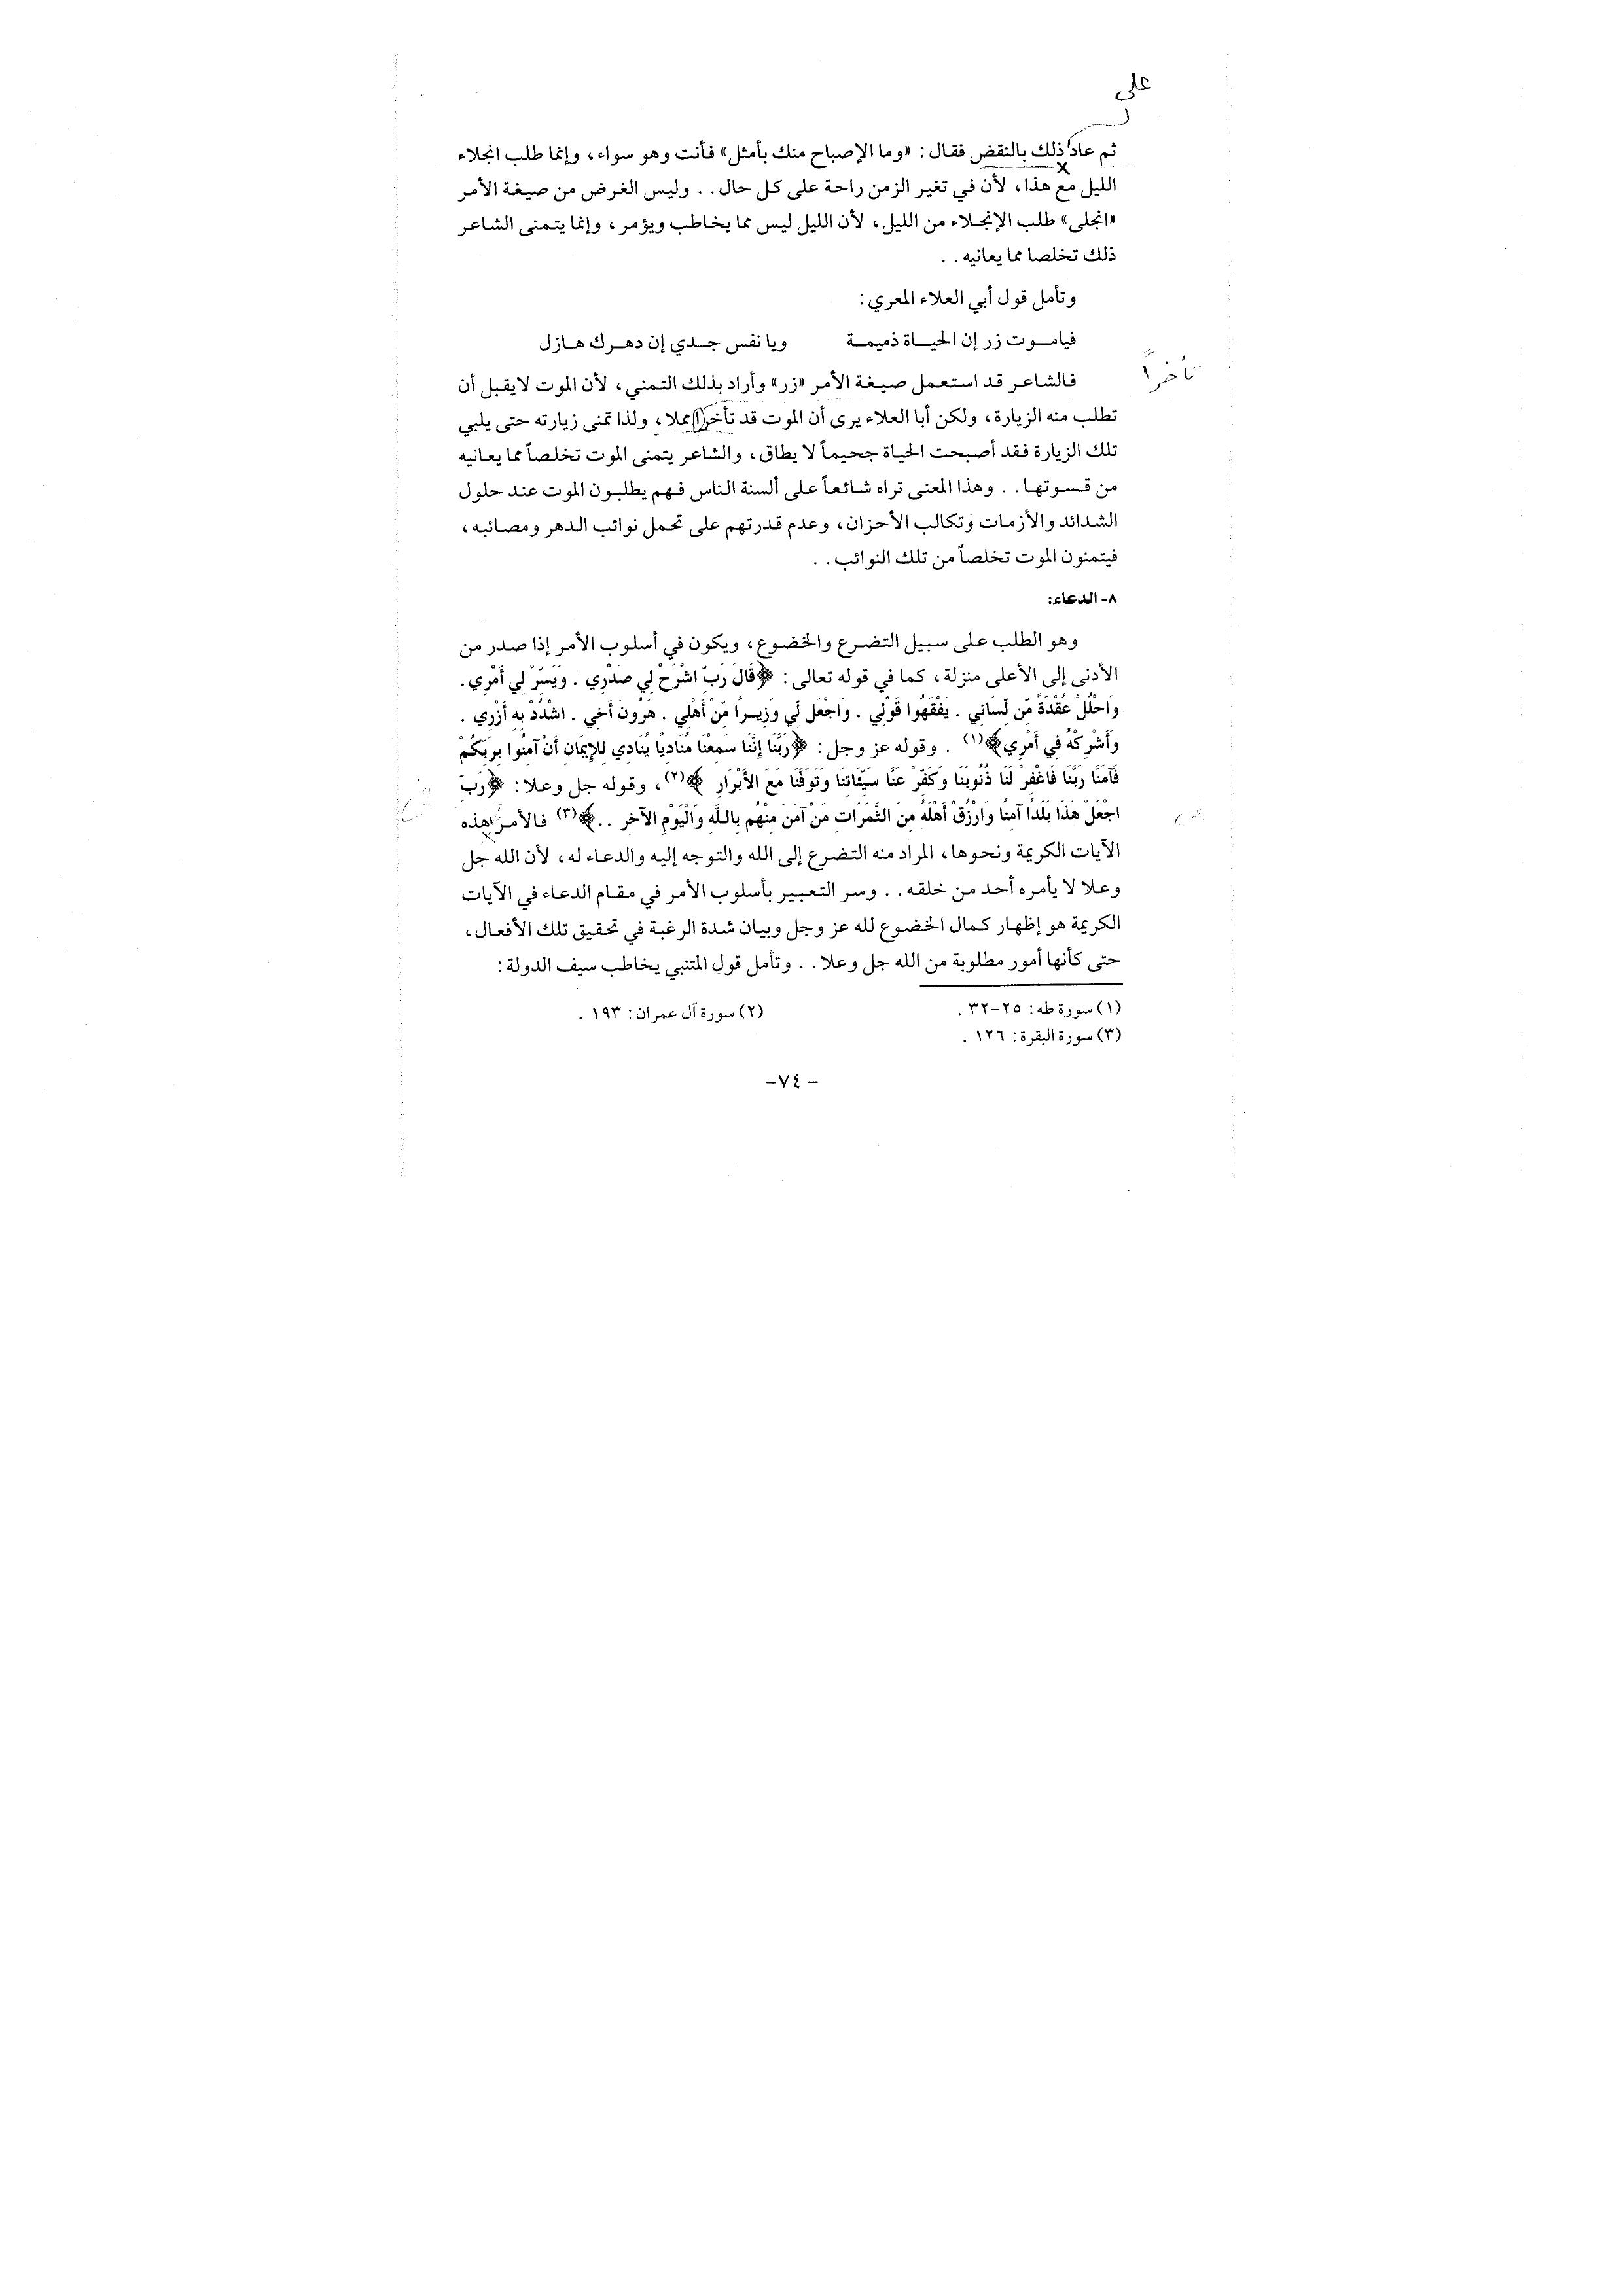 على
ثم عاد ذلك بالنقض فقال: «وما الإصباح منك بأمثل» فأنت وهو سواء، وإنما طلب انجلاء
الليل مع هذا، لأن في تغير الزمن راحة على كل حال.. وليس الغرض من صيغة الأمر
«انجلى» طلب الإنجلاء من الليل، لأن الليل ليس مما يخاطب ويؤمر، وإنما يتمنى الشاعر
ذلك تخلصا مما يعانيه..
وتأمل قول أبي العلاء المعري:
فياموت زر إن الحياة ذميمة ويا نفس جدي إن دهرك هازل
تأخراً
فالشاعر قد استعمل صيغة الأمر «زر» وأراد بذلك التمني، لأن الموت لايقبل أن
تطلب منه الزيارة، ولكن أبا العلاء يرى أن الموت قد تأخر مملا، ولذا تمنى زيارته حتى يلبي
تلك الزيارة فقد أصبحت الحياة جحيماً لا يطاق، والشاعر يتمنى الموت تخلصاً مما يعانيه
من قسوتها.. وهذا المعنى تراه شائعاً على ألسنة الناس فهم يطلبون الموت عند حلول
الشدائد والأزمات وتكالب الأحزان، وعدم قدرتهم على تحمل نوائب الدهر ومصائبه،
فيتمنون الموت تخلصاً من تلك النوائب..
٨- الدعاء:
وهو الطلب على سبيل التضرع والخضوع، ويكون في أسلوب الأمر إذا صدر من
الأدنى إلى الأعلى منزلة، كما في قوله تعالى: ﴿قَالَ رَبِّ اشْرَحْ لِي صَدْرِي . وَيَسِّرْ لِي أَمْرِي.
وَاحْلُلْ عُقْدَةً مِّن لِّسَانِي . يَفْقَهُوا قَوْلِي . وَاجْعَل لِّي وَزِيرًا مِّنْ أَهْلِي . هَرُونَ أَخِي . اشْدُدْ بِهِ أَزْرِي .
وَأَشْرِكْهُ فِي أَمْرِي﴾(١) . وقوله عز وجل: ﴿رَبَّنَا إِنَّنَا سَمِعْنَا مُنَادِيًا يُنَادِي لِلإِيمَانِ أَنْ آمِنُوا بِرَبِّكُمْ
فَآمَنَّا رَبَّنَا فَاغْفِرْ لَنَا ذُنُوبَنَا وَكَفِّرْ عَنَّا سَيِّئَاتِنَا وَتَوَفَّنَا مَعَ الأَبْرَارِ ﴾(٢)، وقوله جل وعلا: ﴿رَبِّ
اجْعَلْ هَذَا بَلَدًا آمِنًا وَارْزُقْ أَهْلَهُ مِنَ الثَّمَرَاتِ مَنْ آمَنَ مِنْهُم بِاللَّهِ وَالْيَوْمِ الآخِرِ ..﴾(٣) فالأمر هذه
الآيات الكريمة ونحوها، المراد منه التضرع إلى الله والتوجه إليه والدعاء له، لأن الله جل
وعلا لا يأمره أحد من خلقه.. وسر التعبير بأسلوب الأمر في مقام الدعاء في الآيات
الكريمة هو إظهار كمال الخضوع لله عز وجل وبيان شدة الرغبة في تحقيق تلك الأفعال،
حتى كأنها أمور مطلوبة من الله جل وعلا.. وتأمل قول المتنبي يخاطب سيف الدولة:
(١) سورة طه: ٢٥-٣٢ . (٢) سورة آل عمران: ١٩٣ .
(٣) سورة البقرة: ١٢٦ .
- ٧٤-